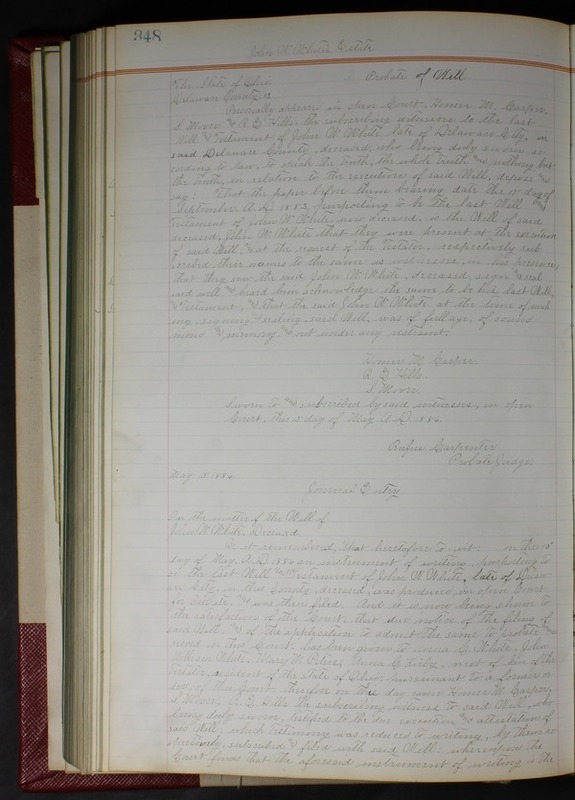 348
John W. White's Estate
The State of Ohio Probate of Will
Delaware County SS
Personally appeared in open Court, Homer M. Carper,
S. Moore & A. E. Lills the subscribing witnesses to the last
Will & Testament of John W. White late of Delaware City, in
said Delaware County, deceased, who being duly sworn ac-
cording to law, to speak the truth, the whole truth and nothing but
the truth, in relation to the execution of said Will, depose and
say: That the paper before them bearing date the 17 day of
September A. D. 1883, purporting to be the last Will and
Testament of John W. White now deceased, is the Will of said
deceased, John W. White that they were present at the execution
of said Will, & at the request of the Testator, respectively sub
scribed their names to the same as witnesses, in his presence,
that they saw the said John W. White, deceased, sign & seal
said will & heard him acknowledge the same to be his last Will
& Testament, & that the said John W. White at the time of mak
ing, signing & sealing said Will, was of full age, of sound
mind & memory, and not under any restraint.
Homer M. Carper
A. E. Lills.
S. Moore.
Sworn to and subscribed by said witnesses, in open
Court, this 15 day of May A. D. 1884.
Rufus Carpenter
Probate Judge.
May 15 1884
Journal Entry.
In the matter of the Will of
John W. White, Deceased
Be it remembered, that heretofore to wit: on the 15
day of May, A. D. 1884 an instrument of writing, purporting to
be the last Will and Testament of John W. White, late of Delaw
are City, in this County, deceased, was produced in open Court
for Probate, and was then filed. And it is now being shown to
the satisfaction of the Court, that due notice of the filing of
said Will & of the application to admit the same to probate and
record in this Court, has been given to Anna C. White, John
William White, Mary M. Peters, Emma G. Kirby, next of kin of the
Testator, resident of the State of Ohio, pursuant to a former or
der, of this Court: therefore on this day came Homer M. Carper,
S. Moore, A. E. Lills the subscribing witness to said Will, who
being duly sworn, testified to the due execution & attestation of
said Will; which testimony was reduced to writing, by them re
spectively, subscribed & filed with said Will: whereupon the
Court finds that the aforesaid instrument of writing is the